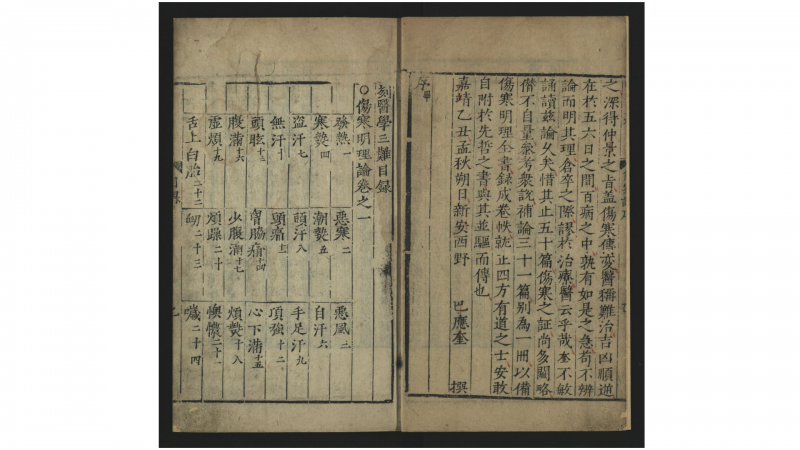 之深得仲景之旨盖傷寒傳变醫稱難治吉凶順逆
在於五六日之間百病之中孰有如是之急苟不辨
論而明其理倉卒之際謬於治療醫云乎哉奎不敏
誦讀玆論久矣惜其止五十篇傷寒之証尚多闕略
僣不自量參考衆說補論三十一篇别為一冊以備
傷寒明理全書録成卷帙就正四方有道之士安敢
自附於先哲之書與其並驅而傳也
嘉靖乙丑孟秋朔日新安西野 巴應奎 撰
序畢
刻醫學三難目録
○傷寒明理論卷之一
發熱一 惡寒二 惡風三
寒熱四 潮熱五 自汗六
盗汗七 頭汗八 手足汗九
無汗十 頭痛十一 項強十二
頭眩十三 胷脇滿十四 心下滿十五
腹滿十六 少腹滿十七 煩熱十八
虚煩十九 煩躁二十 懊憹二十一
舌上白胎二十二 衂二十三 噦二十四
目録